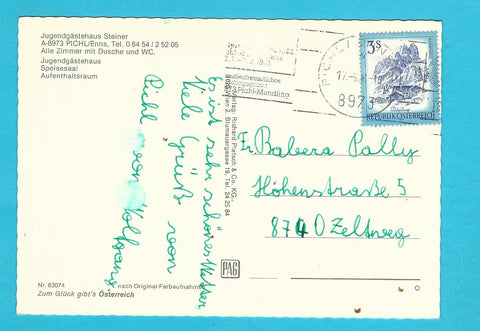 Jugendgästehaus Steiner
A-8973 PICHL/Enns, Tel. 0 64 54 / 2 52 05
Alle Zimmer mit Dusche und WC.
Jugendgästehaus
Speisesaal
Aufenthaltsraum
Es ist sehr schönes Wetter
Viele Grüße von
Pichl von Wolfgang
Nr. 83074
nach Original-Farbaufnahme
Zum Glück gibt's Österreich
Richard Pietsch & Co. KG.,
Wien 2, Blumauergasse 19, Tel. 24 25 84
PAG
Pichl-Mandling
PICHL
8973
3 S
REPUBLIK ÖSTERREICH
Fr Babera Pally
Höhenstraße 5
8740 Zeltweg